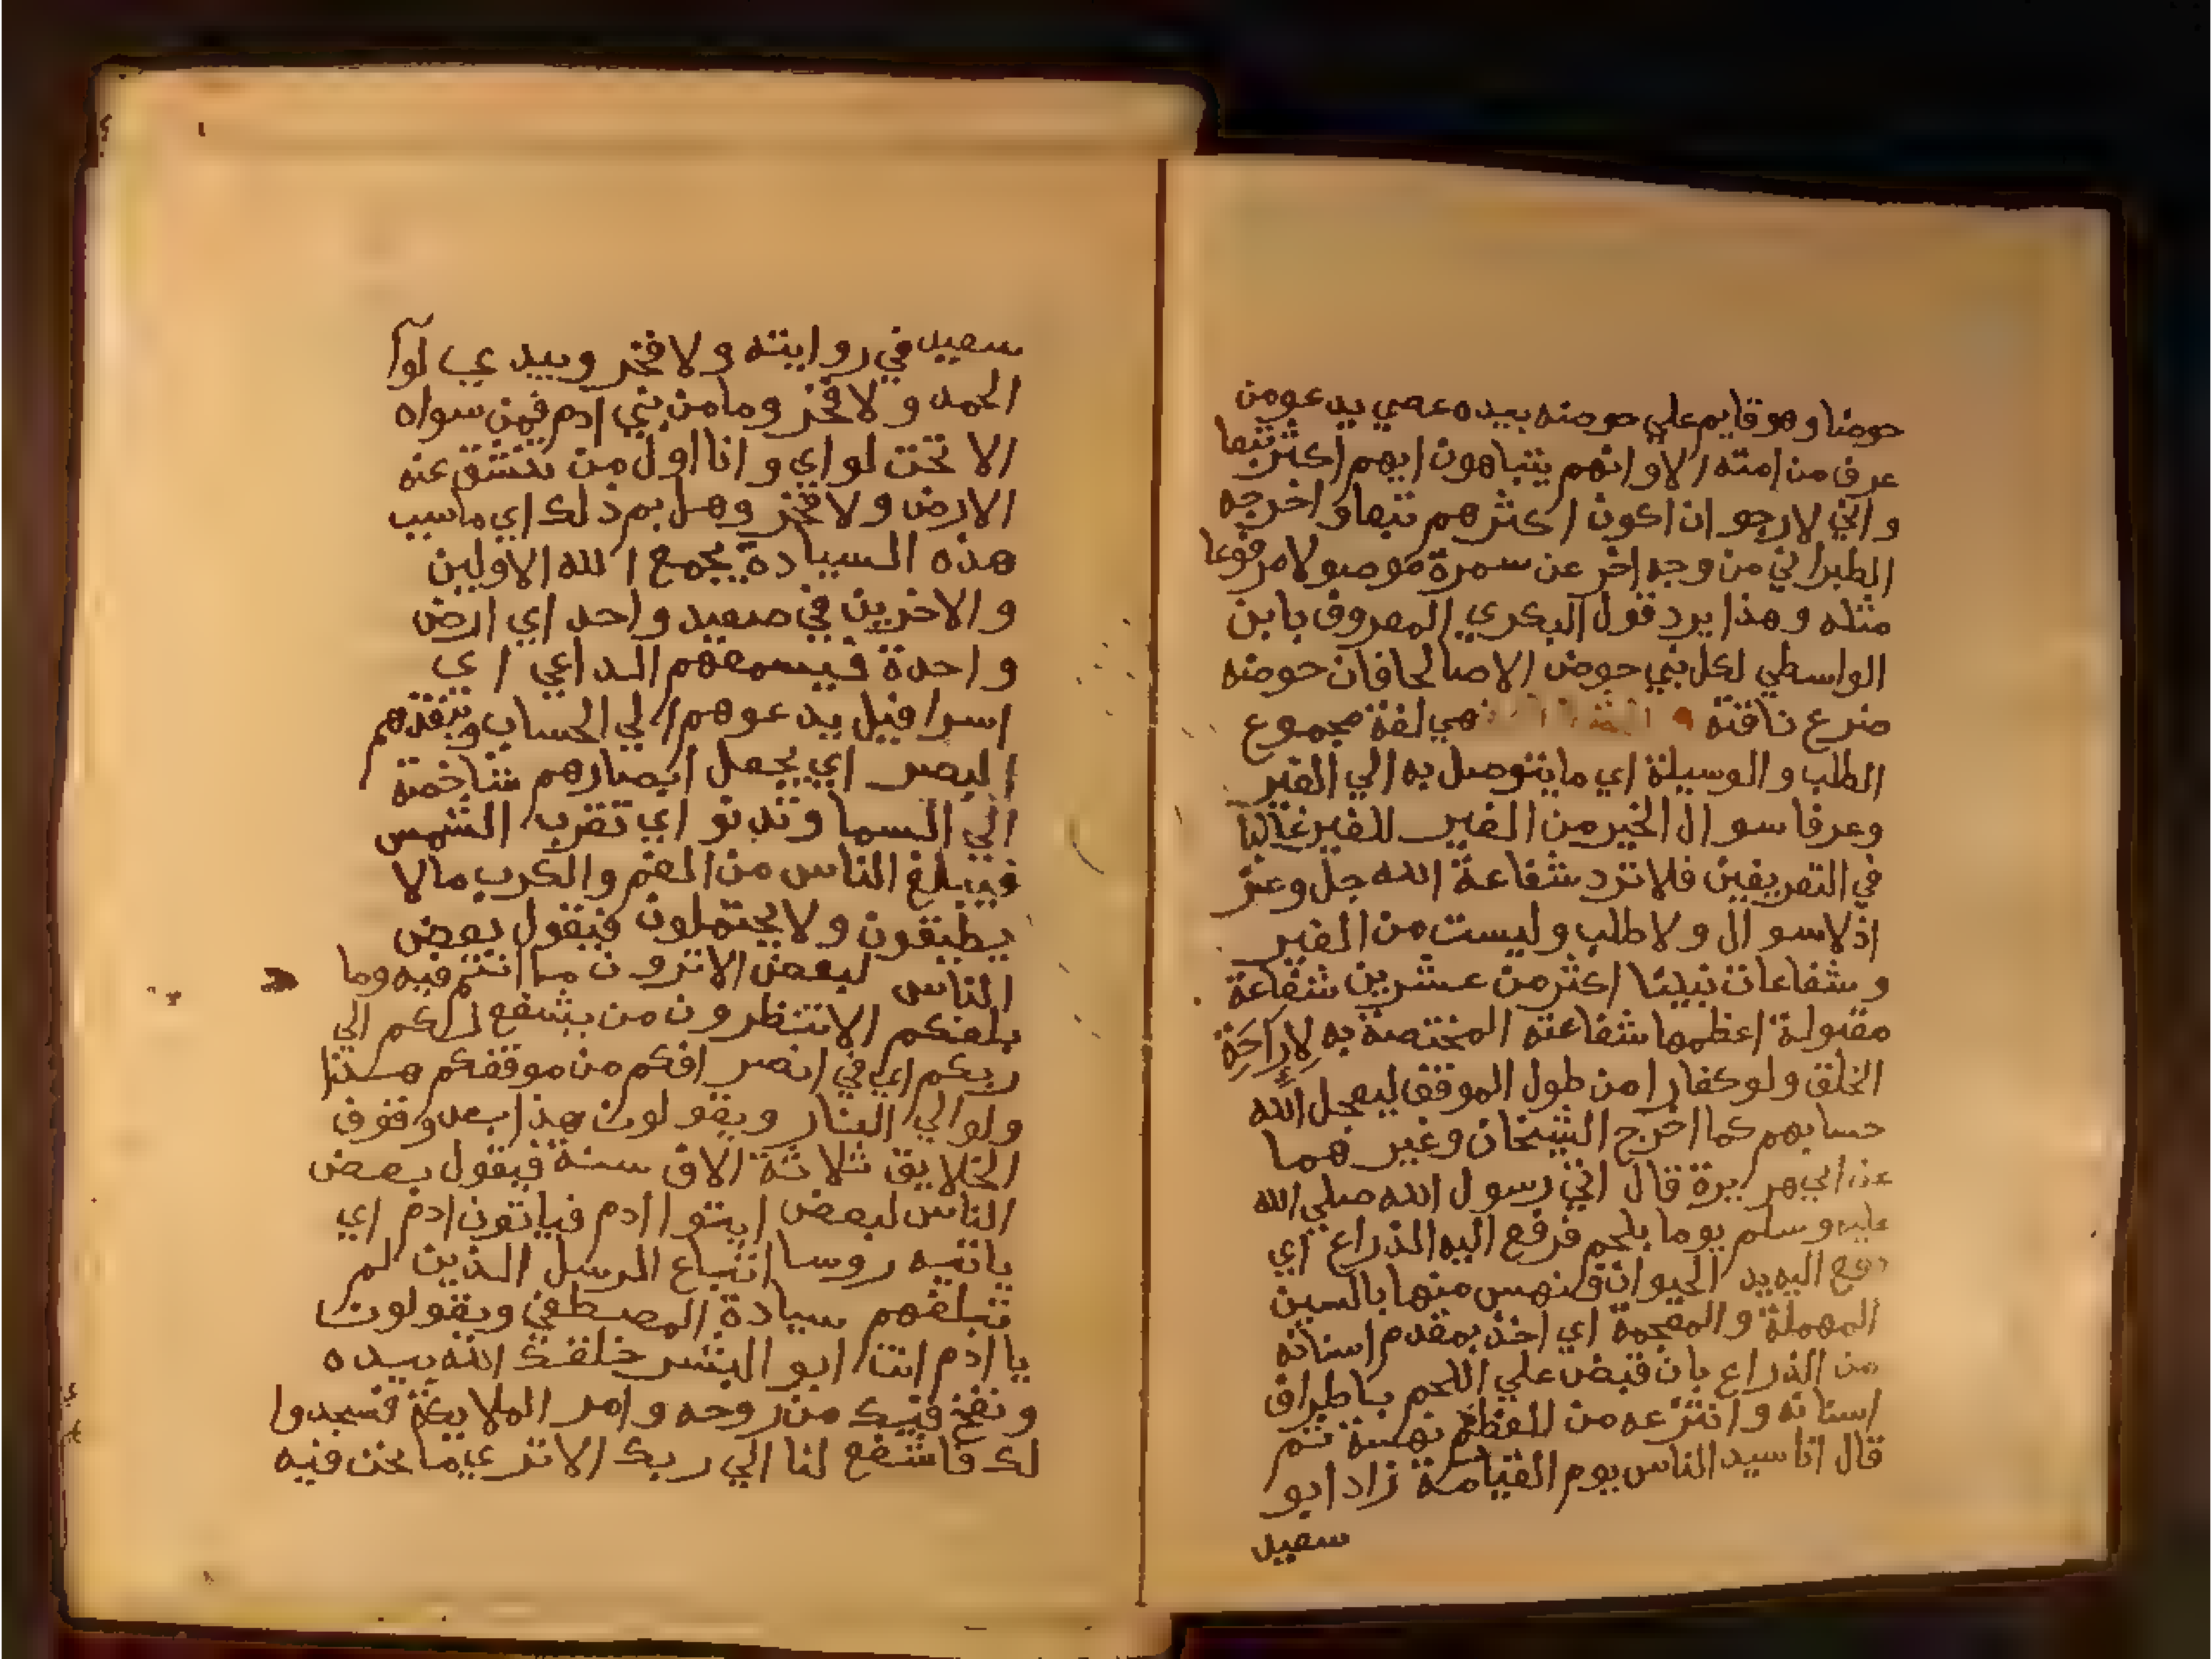 حوضا وهو قايم علي حوضه بيده عصي يدعو من
عرف من امته الا وانهم يتباهون ايهم اكثر تبعا
واني لارجو ان اكون اكثرهم تبعا واخرجه
الطبراني من وجه اخر عن سمرة موصولا مرفوعا
مثله وهذا يرد قول البكري المعروف بابن
الواسطي لكل نبي حوض الا صالحا فان حوضه
ضرع ناقته فهي لغة مجموع
الطلب والوسيلة اي ما يتوصل به الي الغير
وعرفا سوال الخير من الغير للغير غالبا
في التعريفين فلا ترد شفاعة الله جل وعز
اذ لا سوال ولا طلب وليست من الغير
وشفاعات نبينا اكثر من عشرين شفاعة
مقبولة اعظمها شفاعته المختصة به لِإِرَاحَةِ
الخلق ولو كفارا من طول الموقف ليعجل الله
حسابهم كما اخرج الشيخان وغيرهما
عن ابي هريرة قال اتي رسول الله صلي الله
عليه وسلم يوما بلحم فرفع اليه الذراع اي
دفع اليه يد الحيوان فنهس منها بالسين
المهملة والمعجمة اي اخذ بمقدم اسنانه
من الذراع بان قبض علي اللحم باطراف
اسنانه وانتزعه من العظم نهسة ثم
قال انا سيد الناس يوم القيامة زاد ابو
سعيد
سعيد في روايته ولا فخر وبيدي لوآ
الحمد ولا فخر وما من بني ادم فمن سواه
الا تحت لواي وانا اول من تنشق عنه
الارض ولا فخر وهل بم ذلك اي ما سبب
هذه السيادة يجمع الله الاولين
والاخرين في صعيد واحد اي ارض
واحدة فيسمعهم الداعي اي
اسرافيل يدعوهم الي الحساب وينفذهم
البصر اي يجعل ابصارهم شاخصة
الي السما وتدنو اي تقرب الشمس
فيبلغ الناس من الغم والكرب ما لا
يطيقون ولا يحتملون فيقول بعض
الناس لبعض الا ترون ما انتم فيه وما
بلغكم الا تنظرون من يشفع لكم الي
ربكم اي في انصرافكم من موقفكم هذا
ولو الي النار ويقولون هذا بعد وقوف
الخلايق ثلاثة الاف سنة فيقول بعض
الناس لبعض ايتوا ادم فياتون ادم اي
ياتيه روسا اتباع الرسل الذين لم
تبلغهم سيادة المصطفي ويقولون
يا ادم انت ابو البشر خلقك الله بيده
ونفخ فيك من روحه وامر الملايكة فسجدوا
لك فاشفع لنا الي ربك الا تري ما نحن فيه